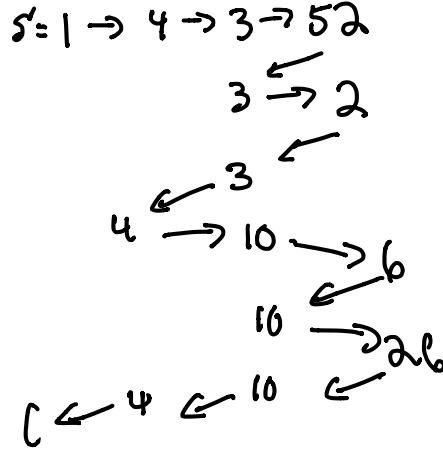 S'= 1 → 4 → 3 → 52
3 → 2
3
4 → 10 → 6
10 → 26
1 ← 4 ← 10